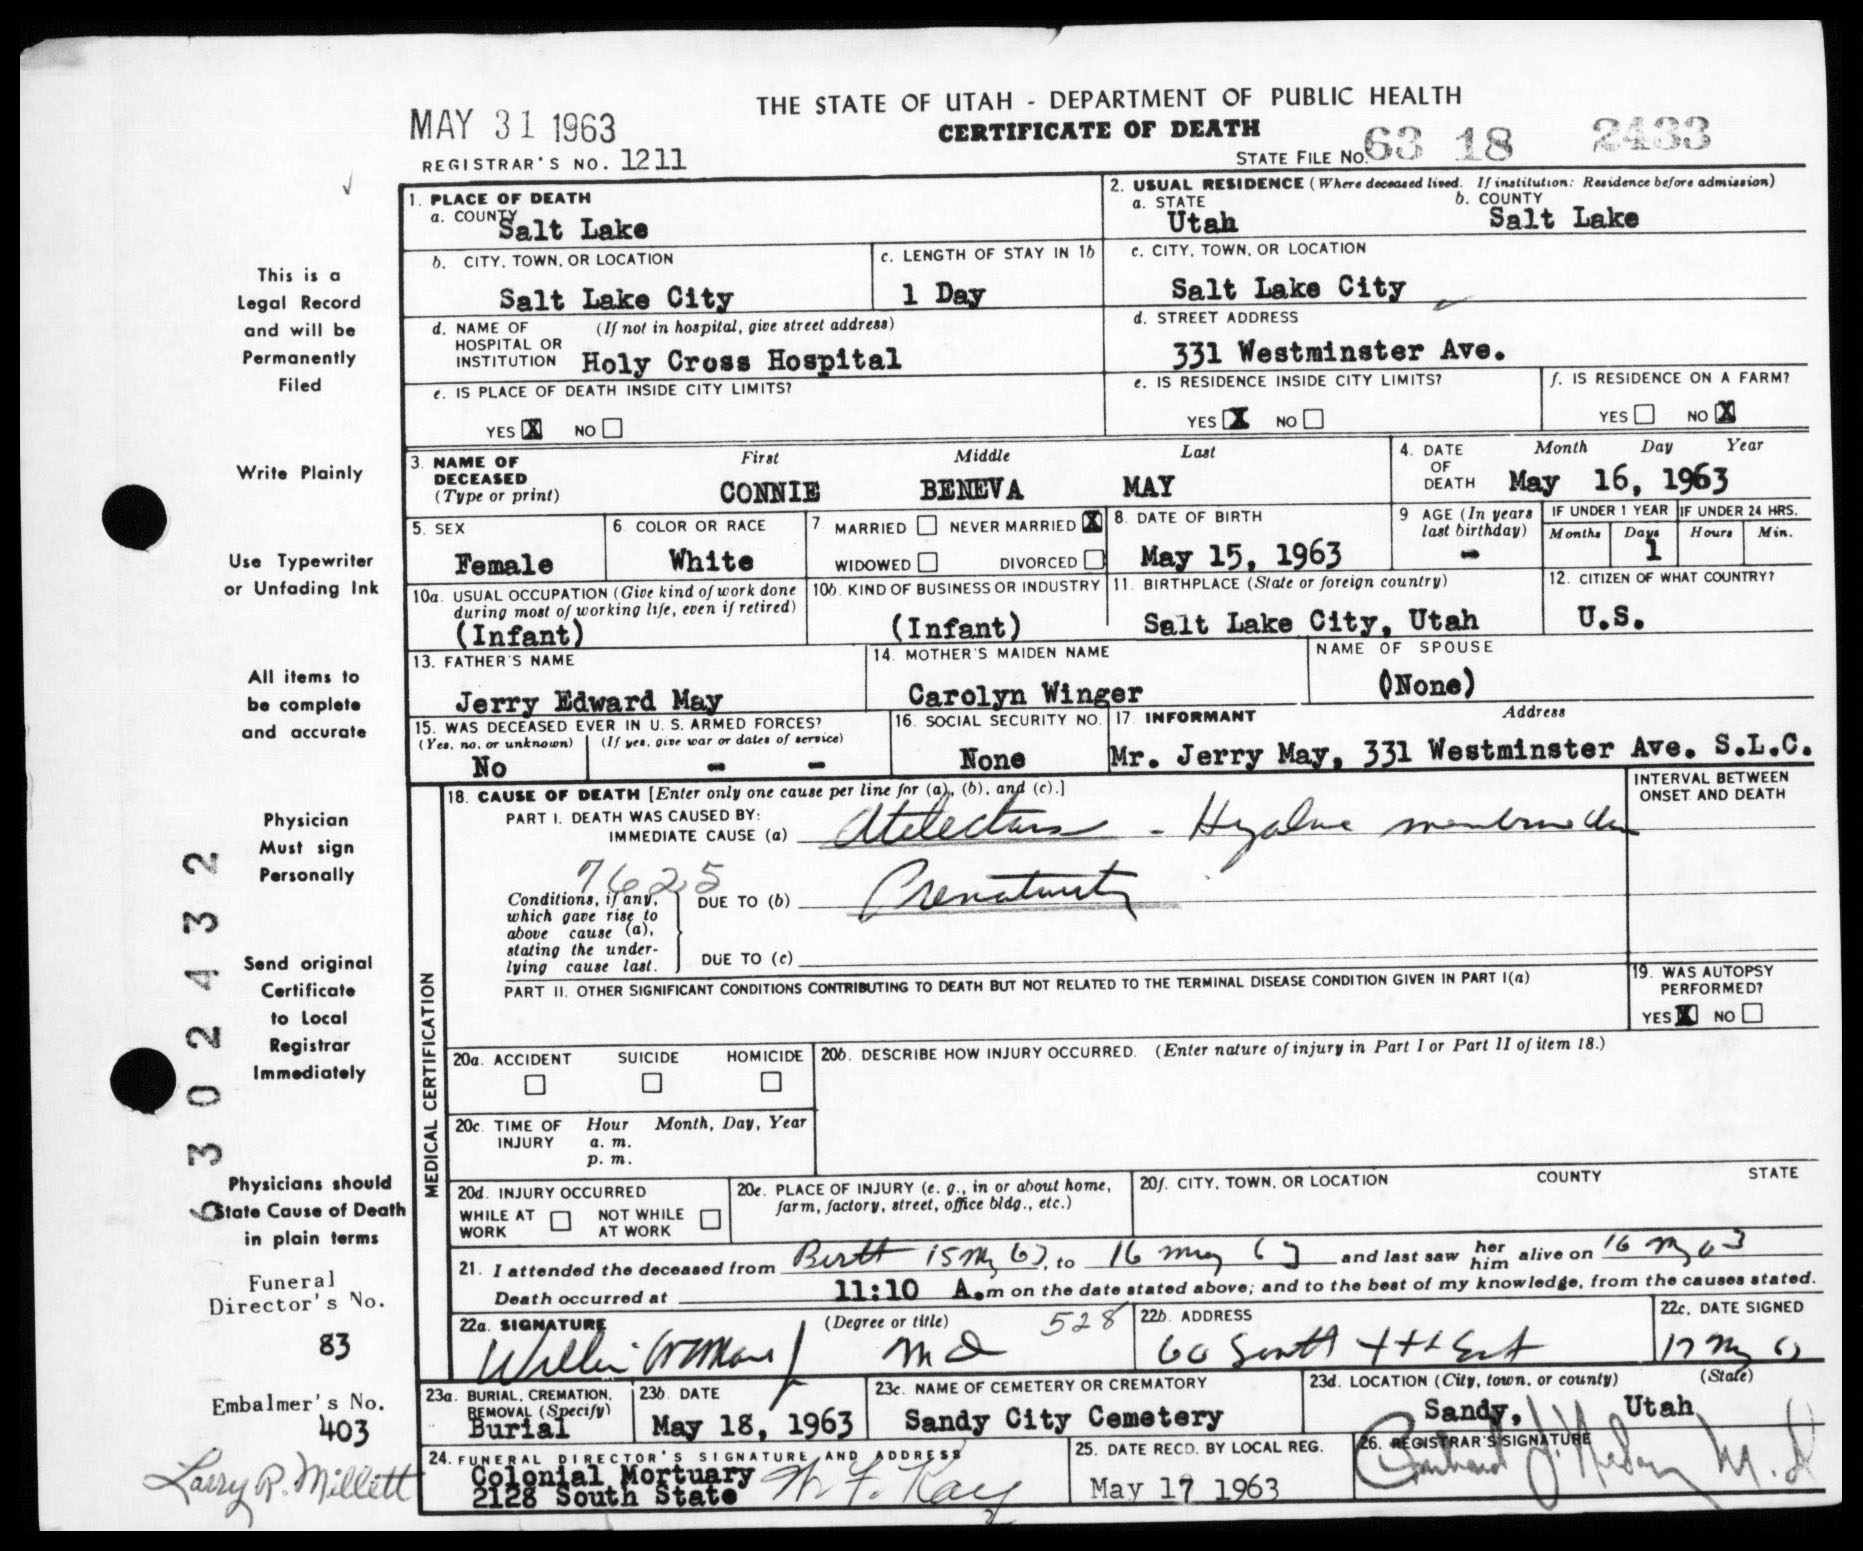 THE STATE OF UTAH - DEPARTMENT OF PUBLIC HEALTH
MAY 31 1963
CERTIFICATE OF DEATH
REGISTRAR'S NO. 1211
STATE FILE NO. 63 18 2433
1. PLACE OF DEATH
a. COUNTY
Salt Lake
2. USUAL RESIDENCE (Where deceased lived. If institution: Residence before admission)
a. STATE
Utah
b. COUNTY
Salt Lake
b. CITY, TOWN, OR LOCATION
Salt Lake City
c. LENGTH OF STAY IN 1b
1 Day
c. CITY, TOWN, OR LOCATION
Salt Lake City
d. NAME OF HOSPITAL OR INSTITUTION
(If not in hospital, give street address)
Holy Cross Hospital
d. STREET ADDRESS
331 Westminster Ave.
e. IS PLACE OF DEATH INSIDE CITY LIMITS?
YES X NO
e. IS RESIDENCE INSIDE CITY LIMITS?
YES X NO
f. IS RESIDENCE ON A FARM?
YES NO X
3. NAME OF DECEASED (Type or print)
First Middle Last
CONNIE BENEVA MAY
4. DATE OF DEATH
Month Day Year
May 16, 1963
5. SEX
Female
6. COLOR OR RACE
White
7. MARRIED NEVER MARRIED X
WIDOWED DIVORCED
8. DATE OF BIRTH
May 15, 1963
9 AGE (In years last birthday)
-
IF UNDER 1 YEAR
Months Days
1
IF UNDER 24 HRS.
Hours Min.
10a. USUAL OCCUPATION (Give kind of work done during most of working life, even if retired)
(Infant)
10b. KIND OF BUSINESS OR INDUSTRY
(Infant)
11. BIRTHPLACE (State or foreign country)
Salt Lake City, Utah
12. CITIZEN OF WHAT COUNTRY?
U.S.
13. FATHER'S NAME
Jerry Edward May
14. MOTHER'S MAIDEN NAME
Carolyn Winger
NAME OF SPOUSE
(None)
15. WAS DECEASED EVER IN U. S. ARMED FORCES?
(Yes, no, or unknown) (If yes, give war or dates of service)
No - -
16. SOCIAL SECURITY NO.
None
17. INFORMANT Address
Mr. Jerry May, 331 Westminster Ave. S.L.C.
MEDICAL CERTIFICATION
18. CAUSE OF DEATH [Enter only one cause per line for (a), (b), and (c).]
INTERVAL BETWEEN ONSET AND DEATH
PART I. DEATH WAS CAUSED BY:
IMMEDIATE CAUSE (a) Atelectasis - Hyaline membrane
7625
Conditions, if any, which gave rise to above cause (a), stating the underlying cause last.
DUE TO (b) Prematurity
DUE TO (c)
PART II. OTHER SIGNIFICANT CONDITIONS CONTRIBUTING TO DEATH BUT NOT RELATED TO THE TERMINAL DISEASE CONDITION GIVEN IN PART I(a)
19. WAS AUTOPSY PERFORMED?
YES X NO
20a. ACCIDENT SUICIDE HOMICIDE
20b. DESCRIBE HOW INJURY OCCURRED. (Enter nature of injury in Part I or Part II of item 18.)
20c. TIME OF INJURY
Hour Month, Day, Year
a. m.
p. m.
20d. INJURY OCCURRED
WHILE AT WORK NOT WHILE AT WORK
20e. PLACE OF INJURY (e. g., in or about home, farm, factory, street, office bldg., etc.)
20f. CITY, TOWN, OR LOCATION COUNTY STATE
21. I attended the deceased from Birth 15 May 63, to 16 May 63 and last saw her him alive on 16 May 63
Death occurred at 11:10 A.m on the date stated above; and to the best of my knowledge, from the causes stated.
22a. SIGNATURE (Degree or title)
M D 528
22b. ADDRESS
60 South 4th East
22c. DATE SIGNED
17 May 63
23a. BURIAL, CREMATION, REMOVAL (Specify)
Burial
23b. DATE
May 18, 1963
23c. NAME OF CEMETERY OR CREMATORY
Sandy City Cemetery
23d. LOCATION (City, town, or county) (State)
Sandy, Utah
24. FUNERAL DIRECTOR'S SIGNATURE AND ADDRESS
Colonial Mortuary
2128 South State
W. F. Kay
25. DATE RECD. BY LOCAL REG.
May 17 1963
26. REGISTRAR'S SIGNATURE
M.D
This is a
Legal Record
and will be
Permanently
Filed
Write Plainly
Use Typewriter
or Unfading Ink
All items to
be complete
and accurate
Physician
Must sign
Personally
Send original
Certificate
to Local
Registrar
Immediately
Physicians should
State Cause of Death
in plain terms
Funeral
Director's No.
83
Embalmer's No.
403
Larry R. Millett
6302432